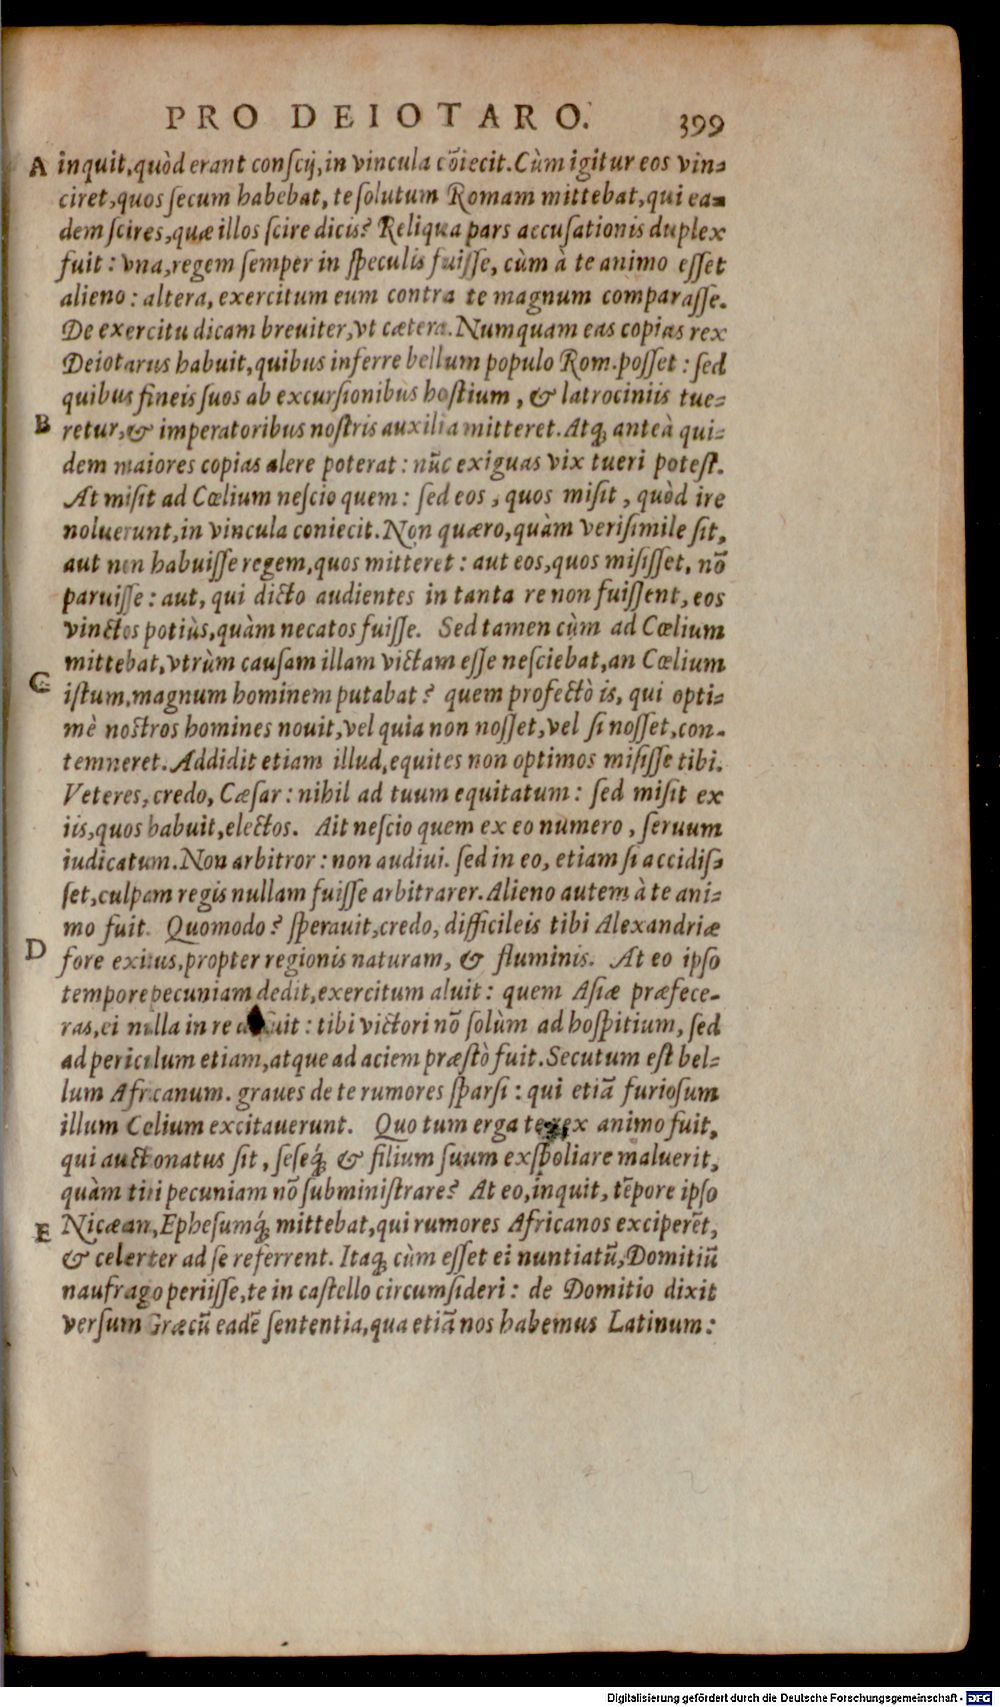 PRO DEIOTARO. 399
A inquit, quòd erant conscij, in vincula cõiecit. Cùm igitur eos vin-
ciret, quos secum habebat, te solutum Romam mittebat, qui ea-
dem scires, quæ illos scire dicis? Reliqua pars accusationis duplex
fuit: vna, regem semper in speculis fuisse, cùm à te animo esset
alieno: altera, exercitum eum contra te magnum comparasse.
De exercitu dicam breuiter, vt cætera. Numquam eas copias rex
Deiotarus habuit, quibus inferre bellum populo Rom. posset: sed
quibus fineis suos ab excursionibus hostium, & latrociniis tue-
B retur, & imperatoribus nostris auxilia mitteret. Atq; anteà qui-
dem maiores copias alere poterat: nũc exiguas vix tueri potest.
At misit ad Cœlium nescio quem: sed eos, quos misit, quòd ire
noluerunt, in vincula coniecit. Non quæro, quàm verisimile sit,
aut non habuisse regem, quos mitteret: aut eos, quos misisset, nõ
paruisse: aut, qui dicto audientes in tanta re non fuissent, eos
vinctos potiùs, quàm necatos fuisse. Sed tamen cùm ad Cœlium
mittebat, vtrùm causam illam victam esse nesciebat, an Cœlium
C istum, magnum hominem putabat? quem profectò is, qui opti-
mè nostros homines nouit, vel quia non nosset, vel si nosset, con-
temneret. Addidit etiam illud, equites non optimos misisse tibi.
Veteres, credo, Cæsar: nihil ad tuum equitatum: sed misit ex
iis, quos habuit, electos. Ait nescio quem ex eo numero, seruum
iudicatum. Non arbitror: non audiui. sed in eo, etiam si accidis-
set, culpam regis nullam fuisse arbitrarer. Alieno autem à te ani-
mo fuit. Quomodo? sperauit, credo, difficileis tibi Alexandriæ
D fore exitus, propter regionis naturam, & fluminis. At eo ipso
tempore pecuniam dedit, exercitum aluit: quem Asiæ præfece-
ras, ei nulla in re : tibi victori nõ solùm ad hospitium, sed
ad periculum etiam, atque ad aciem præstò fuit. Secutum est bel-
lum Africanum. graues de te rumores sparsi: qui etiã furiosum
illum Celium excitauerunt. Quo tum erga te rex animo fuit,
qui auctionatus sit, seseq́; & filium suum exspoliare maluerit,
quàm tibi pecuniam nõ subministrare? At eo, inquit, tẽpore ipso
E Nicæam, Ephesumq́; mittebat, qui rumores Africanos exciperẽt,
& celerter ad se referrent. Itaq; cùm esset ei nuntiatũ, Domitiũ
naufragio periisse, te in castello circumsideri: de Domitio dixit
versum Græcũ eadẽ sententia, qua etiã nos habemus Latinum:
Digitalisierung gefördert durch die Deutsche Forschungsgemeinschaft - DFG